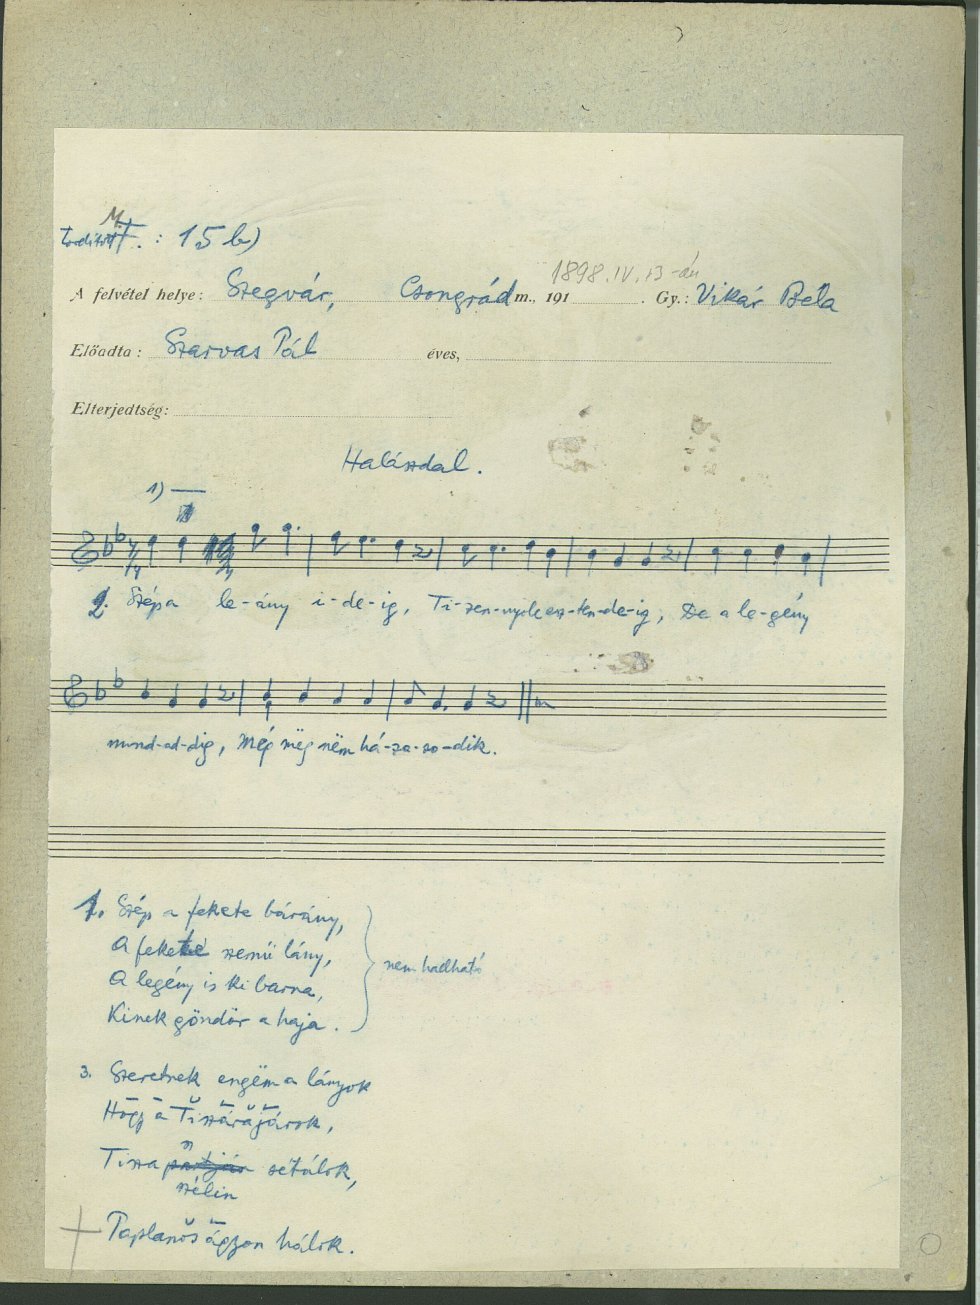 M.
: 15 b)
1898.IV.13-án
A felvétel helye: Szegvár, Csongrád m., 191 . Gy.: Vikár Béla
Előadta: Szarvas Pál éves,
Elterjedtség:
Halászdal.
1)
2. Szép a le-ány i-de-ig, Ti-zen-nyolc esz-ten-de-ig, De a le-gény
mind-ad-dig, Még mëg nëm há-za-so-dik.
1. Szép a fekete bárány,
A fekete szemű lány,
A legény is ki barna,
Kinek göndör a haja.
nem hallható
3. Szeretnek engëm a lányok
Hogy a Tiszára járok,
Tisza partján sétálok,
szélin
Paplanos ágyon hálok.